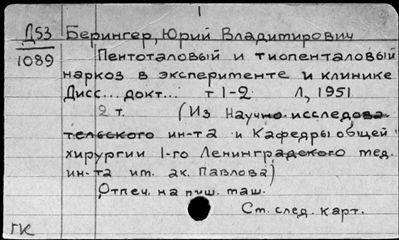 Д53 Берингер, Юрий Владимирович
1089 Пентоталовый и тиопенталовый
наркоз в эксперименте и клинике
Дисс... докт... т 1-2 Л, 1951
2 т. (Из Научно-исследова
тельского ин-та и Кафедры общей
хирургии 1-го Ленинградского мед.
ин-та им. ак. Павлова)
Отпеч. на пиш. маш.
См. след. карт.
ГК